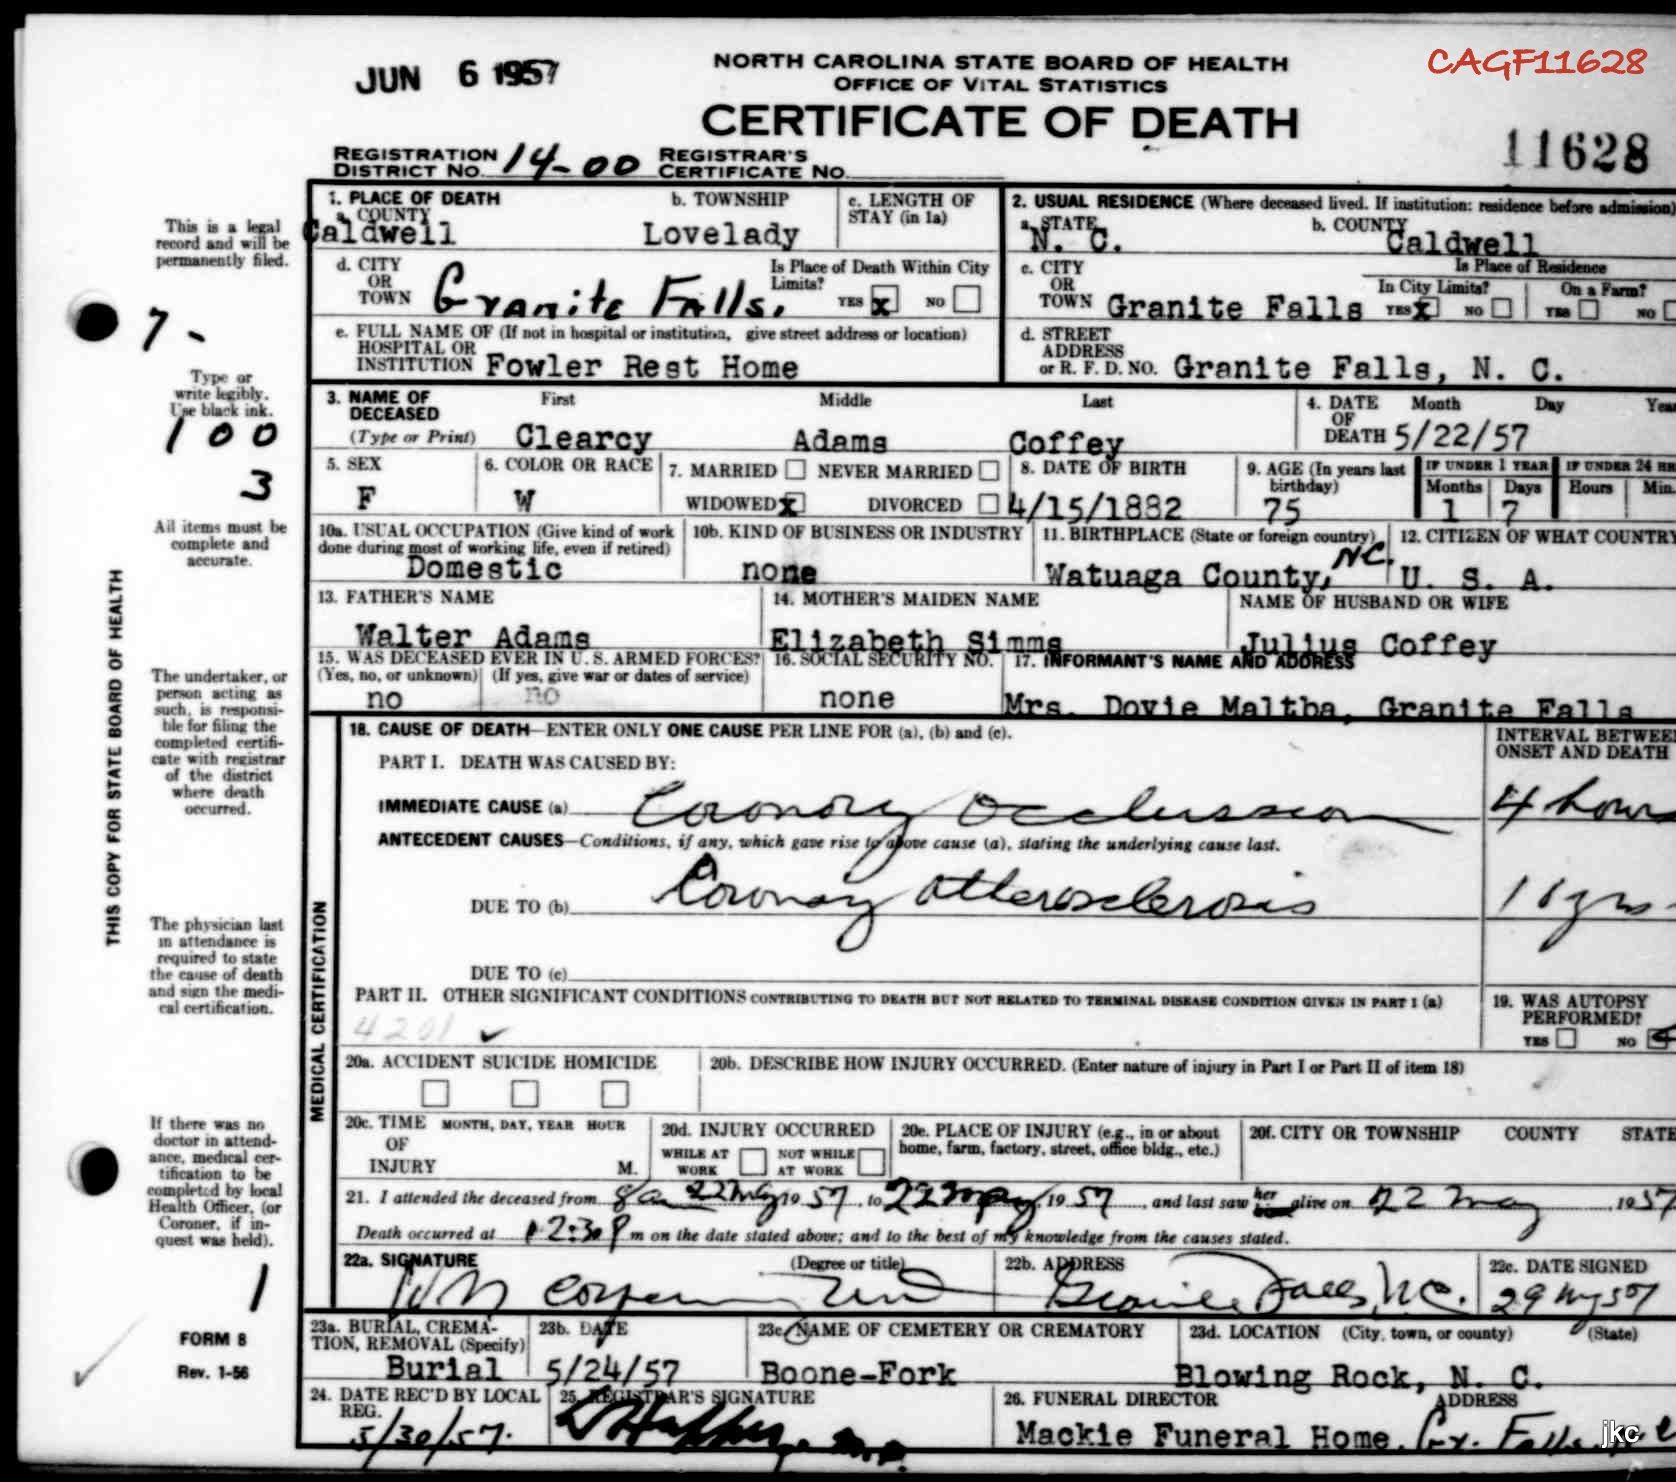 JUN 6 1957
NORTH CAROLINA STATE BOARD OF HEALTH
OFFICE OF VITAL STATISTICS
CERTIFICATE OF DEATH
CAGF11628
11628
REGISTRATION DISTRICT NO. 14-00 REGISTRAR'S CERTIFICATE NO.
This is a legal record and will be permanently filed.
7-
Type or write legibly. Use black ink.
100
3
All items must be complete and accurate.
THIS COPY FOR STATE BOARD OF HEALTH
The undertaker, or person acting as such, is responsible for filing the completed certificate with registrar of the district where death occurred.
The physician last in attendance is required to state the cause of death and sign the medical certification.
If there was no doctor in attendance, medical certification to be completed by local Health Officer, (or Coroner, if inquest was held).
1
FORM 8
Rev. 1-56
1. PLACE OF DEATH
a. COUNTY Caldwell
b. TOWNSHIP Lovelady
c. LENGTH OF STAY (in 1a)
2. USUAL RESIDENCE (Where deceased lived. If institution: residence before admission)
a. STATE N. C.
b. COUNTY Caldwell
d. CITY OR TOWN Granite Falls,
Is Place of Death Within City Limits? YES x NO
c. CITY OR TOWN Granite Falls
Is Place of Residence
In City Limits? YES x NO
On a Farm? YES NO
e. FULL NAME OF (If not in hospital or institution, give street address or location) HOSPITAL OR INSTITUTION Fowler Rest Home
d. STREET ADDRESS or R. F. D. NO. Granite Falls, N. C.
3. NAME OF DECEASED (Type or Print)
First Clearcy
Middle Adams
Last Coffey
4. DATE OF DEATH Month Day Year 5/22/57
5. SEX F
6. COLOR OR RACE W
7. MARRIED NEVER MARRIED WIDOWED x DIVORCED
8. DATE OF BIRTH 4/15/1882
9. AGE (In years last birthday) 75
IF UNDER 1 YEAR Months 1 Days 7
IF UNDER 24 HR Hours Min.
10a. USUAL OCCUPATION (Give kind of work done during most of working life, even if retired) Domestic
10b. KIND OF BUSINESS OR INDUSTRY none
11. BIRTHPLACE (State or foreign country) Watuaga County, NC.
12. CITIZEN OF WHAT COUNTRY U. S. A.
13. FATHER'S NAME Walter Adams
14. MOTHER'S MAIDEN NAME Elizabeth Simms
NAME OF HUSBAND OR WIFE Julius Coffey
15. WAS DECEASED EVER IN U. S. ARMED FORCES? (Yes, no, or unknown) no (If yes, give war or dates of service) no
16. SOCIAL SECURITY NO. none
17. INFORMANT'S NAME AND ADDRESS Mrs. Dovie Maltba, Granite Falls
MEDICAL CERTIFICATION
18. CAUSE OF DEATH—ENTER ONLY ONE CAUSE PER LINE FOR (a), (b) and (c).
INTERVAL BETWEEN ONSET AND DEATH
PART I. DEATH WAS CAUSED BY:
IMMEDIATE CAUSE (a) Coronory Occlussion 4 hours
ANTECEDENT CAUSES—Conditions, if any, which gave rise to above cause (a), stating the underlying cause last.
DUE TO (b) Coronay Atherosclerosis
DUE TO (c)
PART II. OTHER SIGNIFICANT CONDITIONS CONTRIBUTING TO DEATH BUT NOT RELATED TO TERMINAL DISEASE CONDITION GIVEN IN PART I (a)
4201
19. WAS AUTOPSY PERFORMED? YES NO
20a. ACCIDENT SUICIDE HOMICIDE
20b. DESCRIBE HOW INJURY OCCURRED. (Enter nature of injury in Part I or Part II of item 18)
20c. TIME OF INJURY MONTH, DAY, YEAR HOUR M.
20d. INJURY OCCURRED WHILE AT WORK NOT WHILE AT WORK
20e. PLACE OF INJURY (e.g., in or about home, farm, factory, street, office bldg., etc.)
20f. CITY OR TOWNSHIP COUNTY STATE
21. I attended the deceased from 8 am 22 May 1957, to 22 May, 1957, and last saw her alive on 22 May 1957
Death occurred at 12:30 P m on the date stated above; and to the best of my knowledge from the causes stated.
22a. SIGNATURE (Degree or title)
22b. ADDRESS Granite Falls, N.C.
22c. DATE SIGNED 29 My 57
23a. BURIAL, CREMATION, REMOVAL (Specify) Burial
23b. DATE 5/24/57
23c. NAME OF CEMETERY OR CREMATORY Boone-Fork
23d. LOCATION (City, town, or county) (State) Blowing Rock, N. C.
24. DATE REC'D BY LOCAL REG. 5/30/57.
25. REGISTRAR'S SIGNATURE
26. FUNERAL DIRECTOR ADDRESS Mackie Funeral Home, Gr. Falls,
jkc